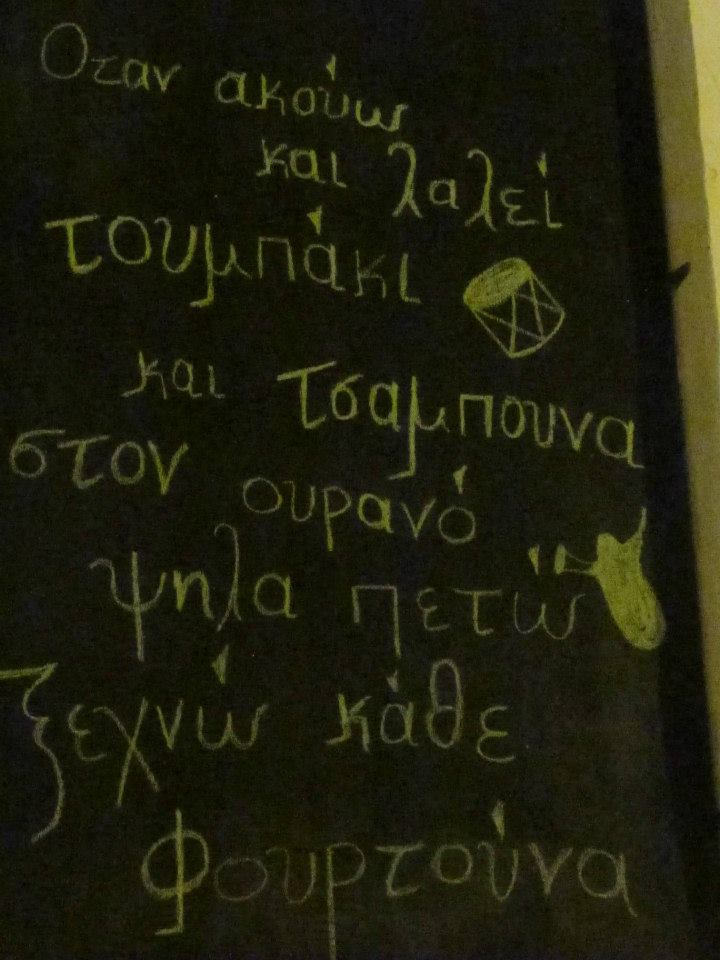 Οταν ακούω
και λαλεί
τουμπάκι
και τσαμπουνα
στον ουρανό
ψηλα πετώ
ξεχνώ κάθε
φουρτούνα